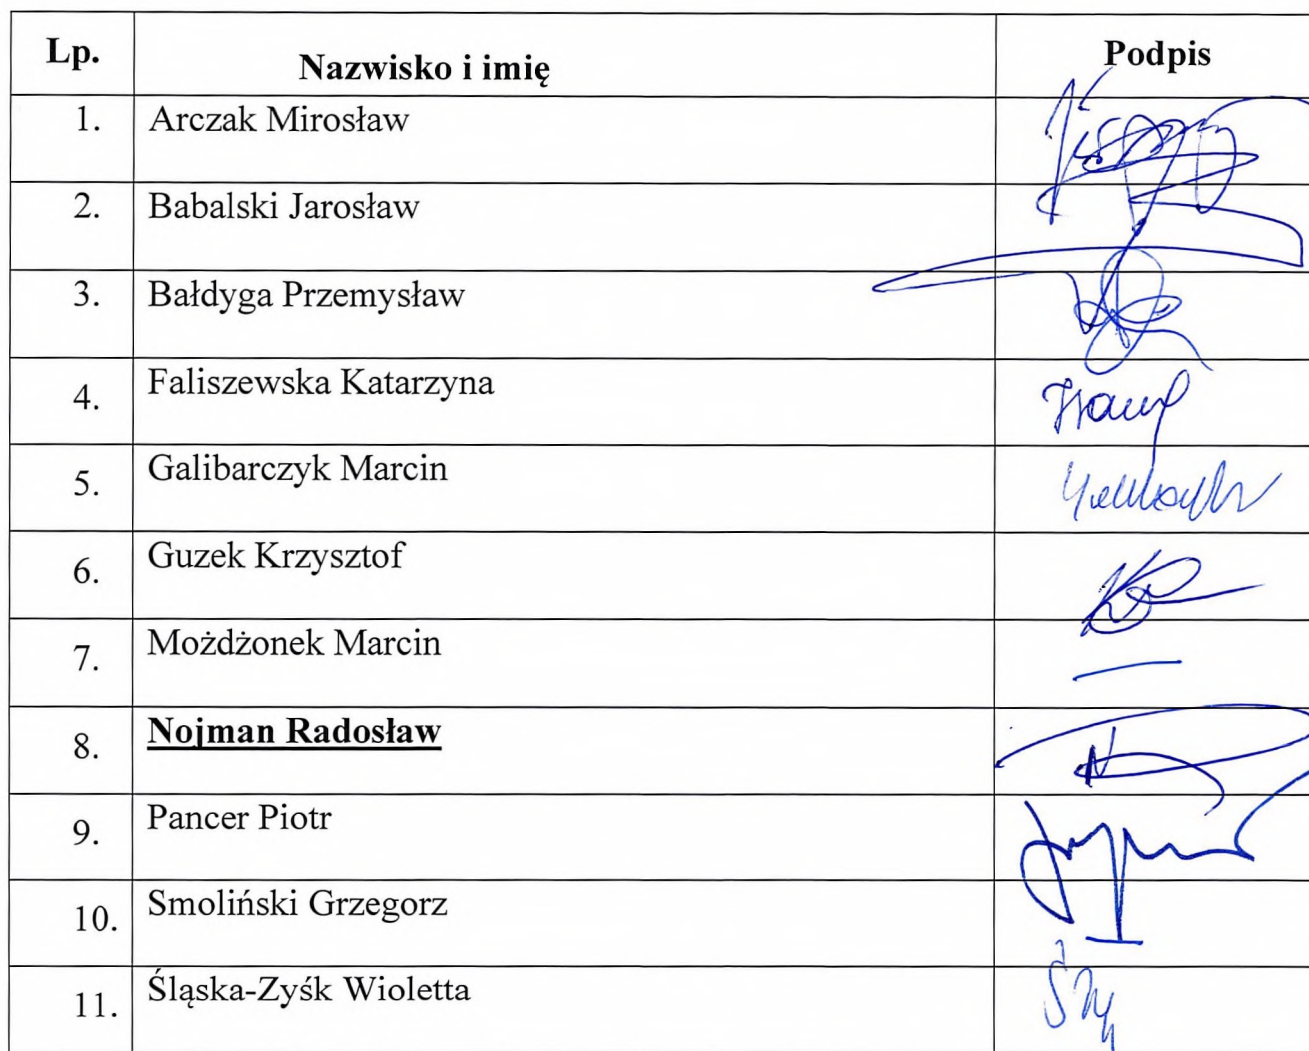 Lp. Nazwisko i imię Podpis
1. Arczak Mirosław
2. Babalski Jarosław
3. Bałdyga Przemysław
4. Faliszewska Katarzyna
5. Galibarczyk Marcin
6. Guzek Krzysztof
7. Możdżonek Marcin
8. Nojman Radosław
9. Pancer Piotr
10. Smoliński Grzegorz
11. Śląska-Zyśk Wioletta